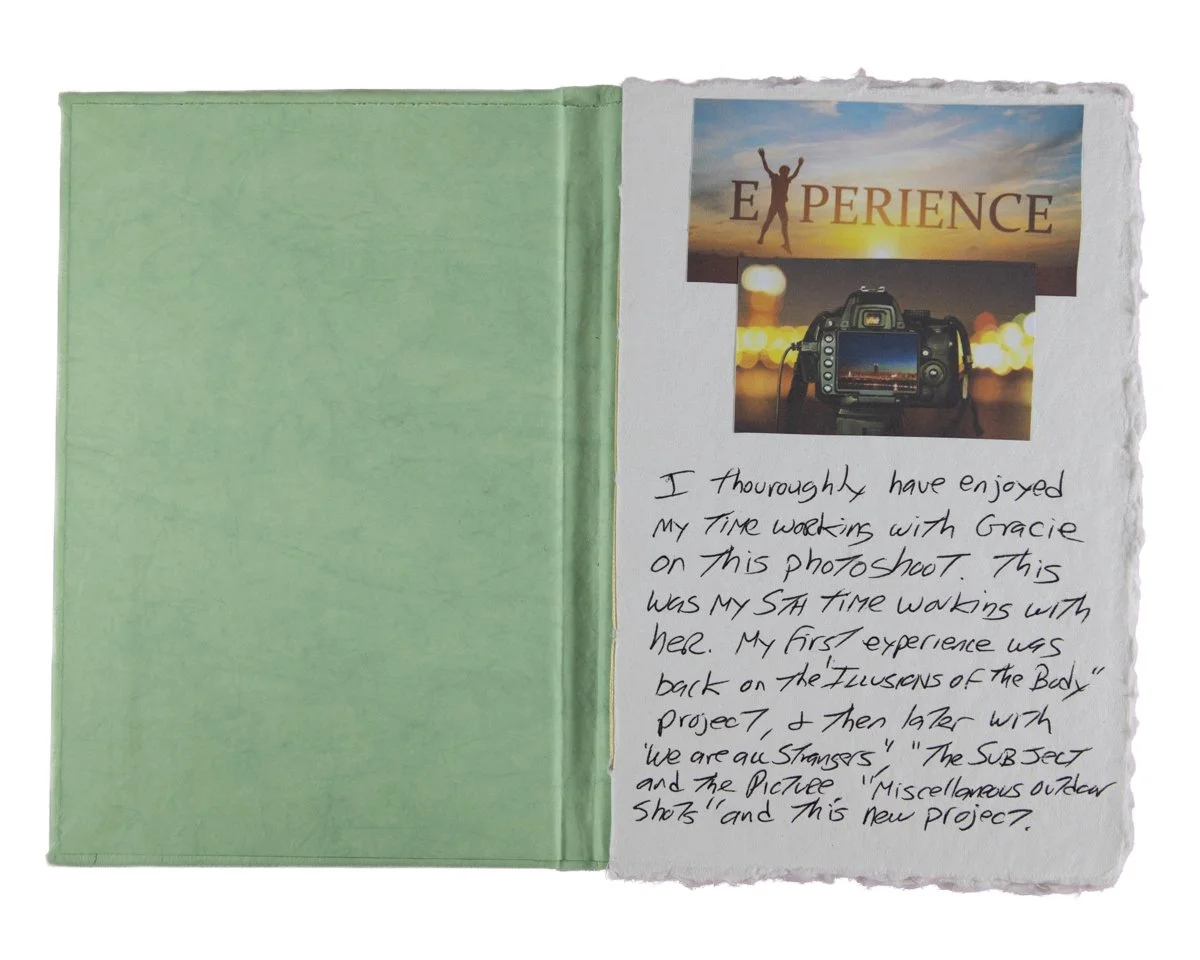 EXPERIENCE
I thouroughly have enjoyed
my time working with Gracie
on this photoshoot. This
was my 5th time working with
her. My first experience was
back on the "Illusions of the Body"
project, & then later with
"We are all Strangers", "The Subject
and the Picture", "Miscellaneous outdoor
shots" and this new project.